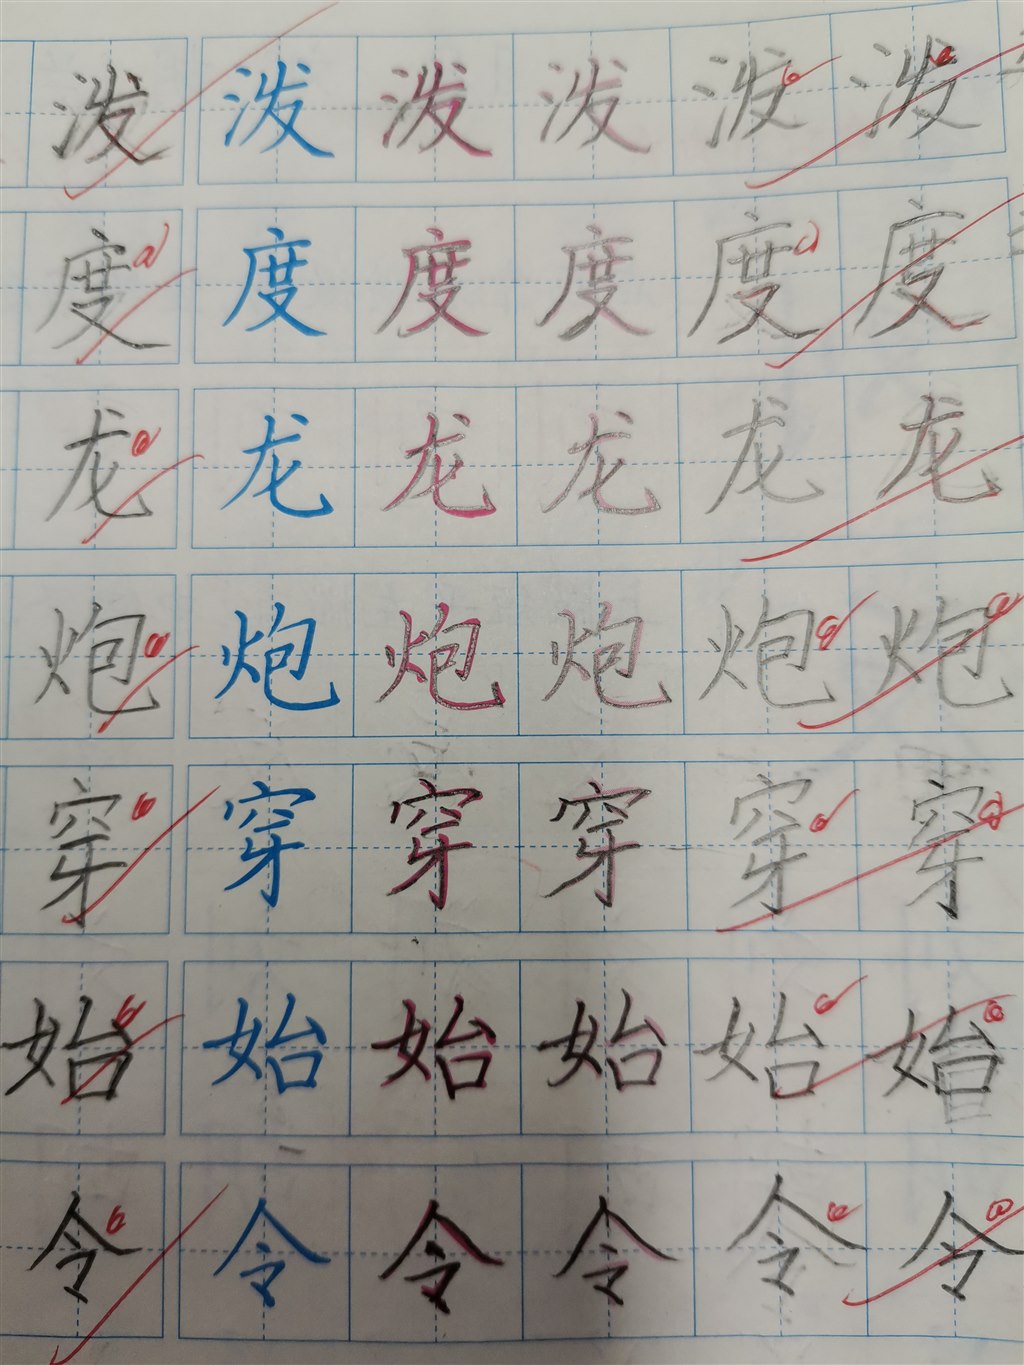 泼 泼 泼 泼 泼 泼
度 度 度 度 度 度
龙 龙 龙 龙 龙 龙
炮 炮 炮 炮 炮 炮
穿 穿 穿 穿 穿 穿
始 始 始 始 始 始
令 令 令 令 令 令